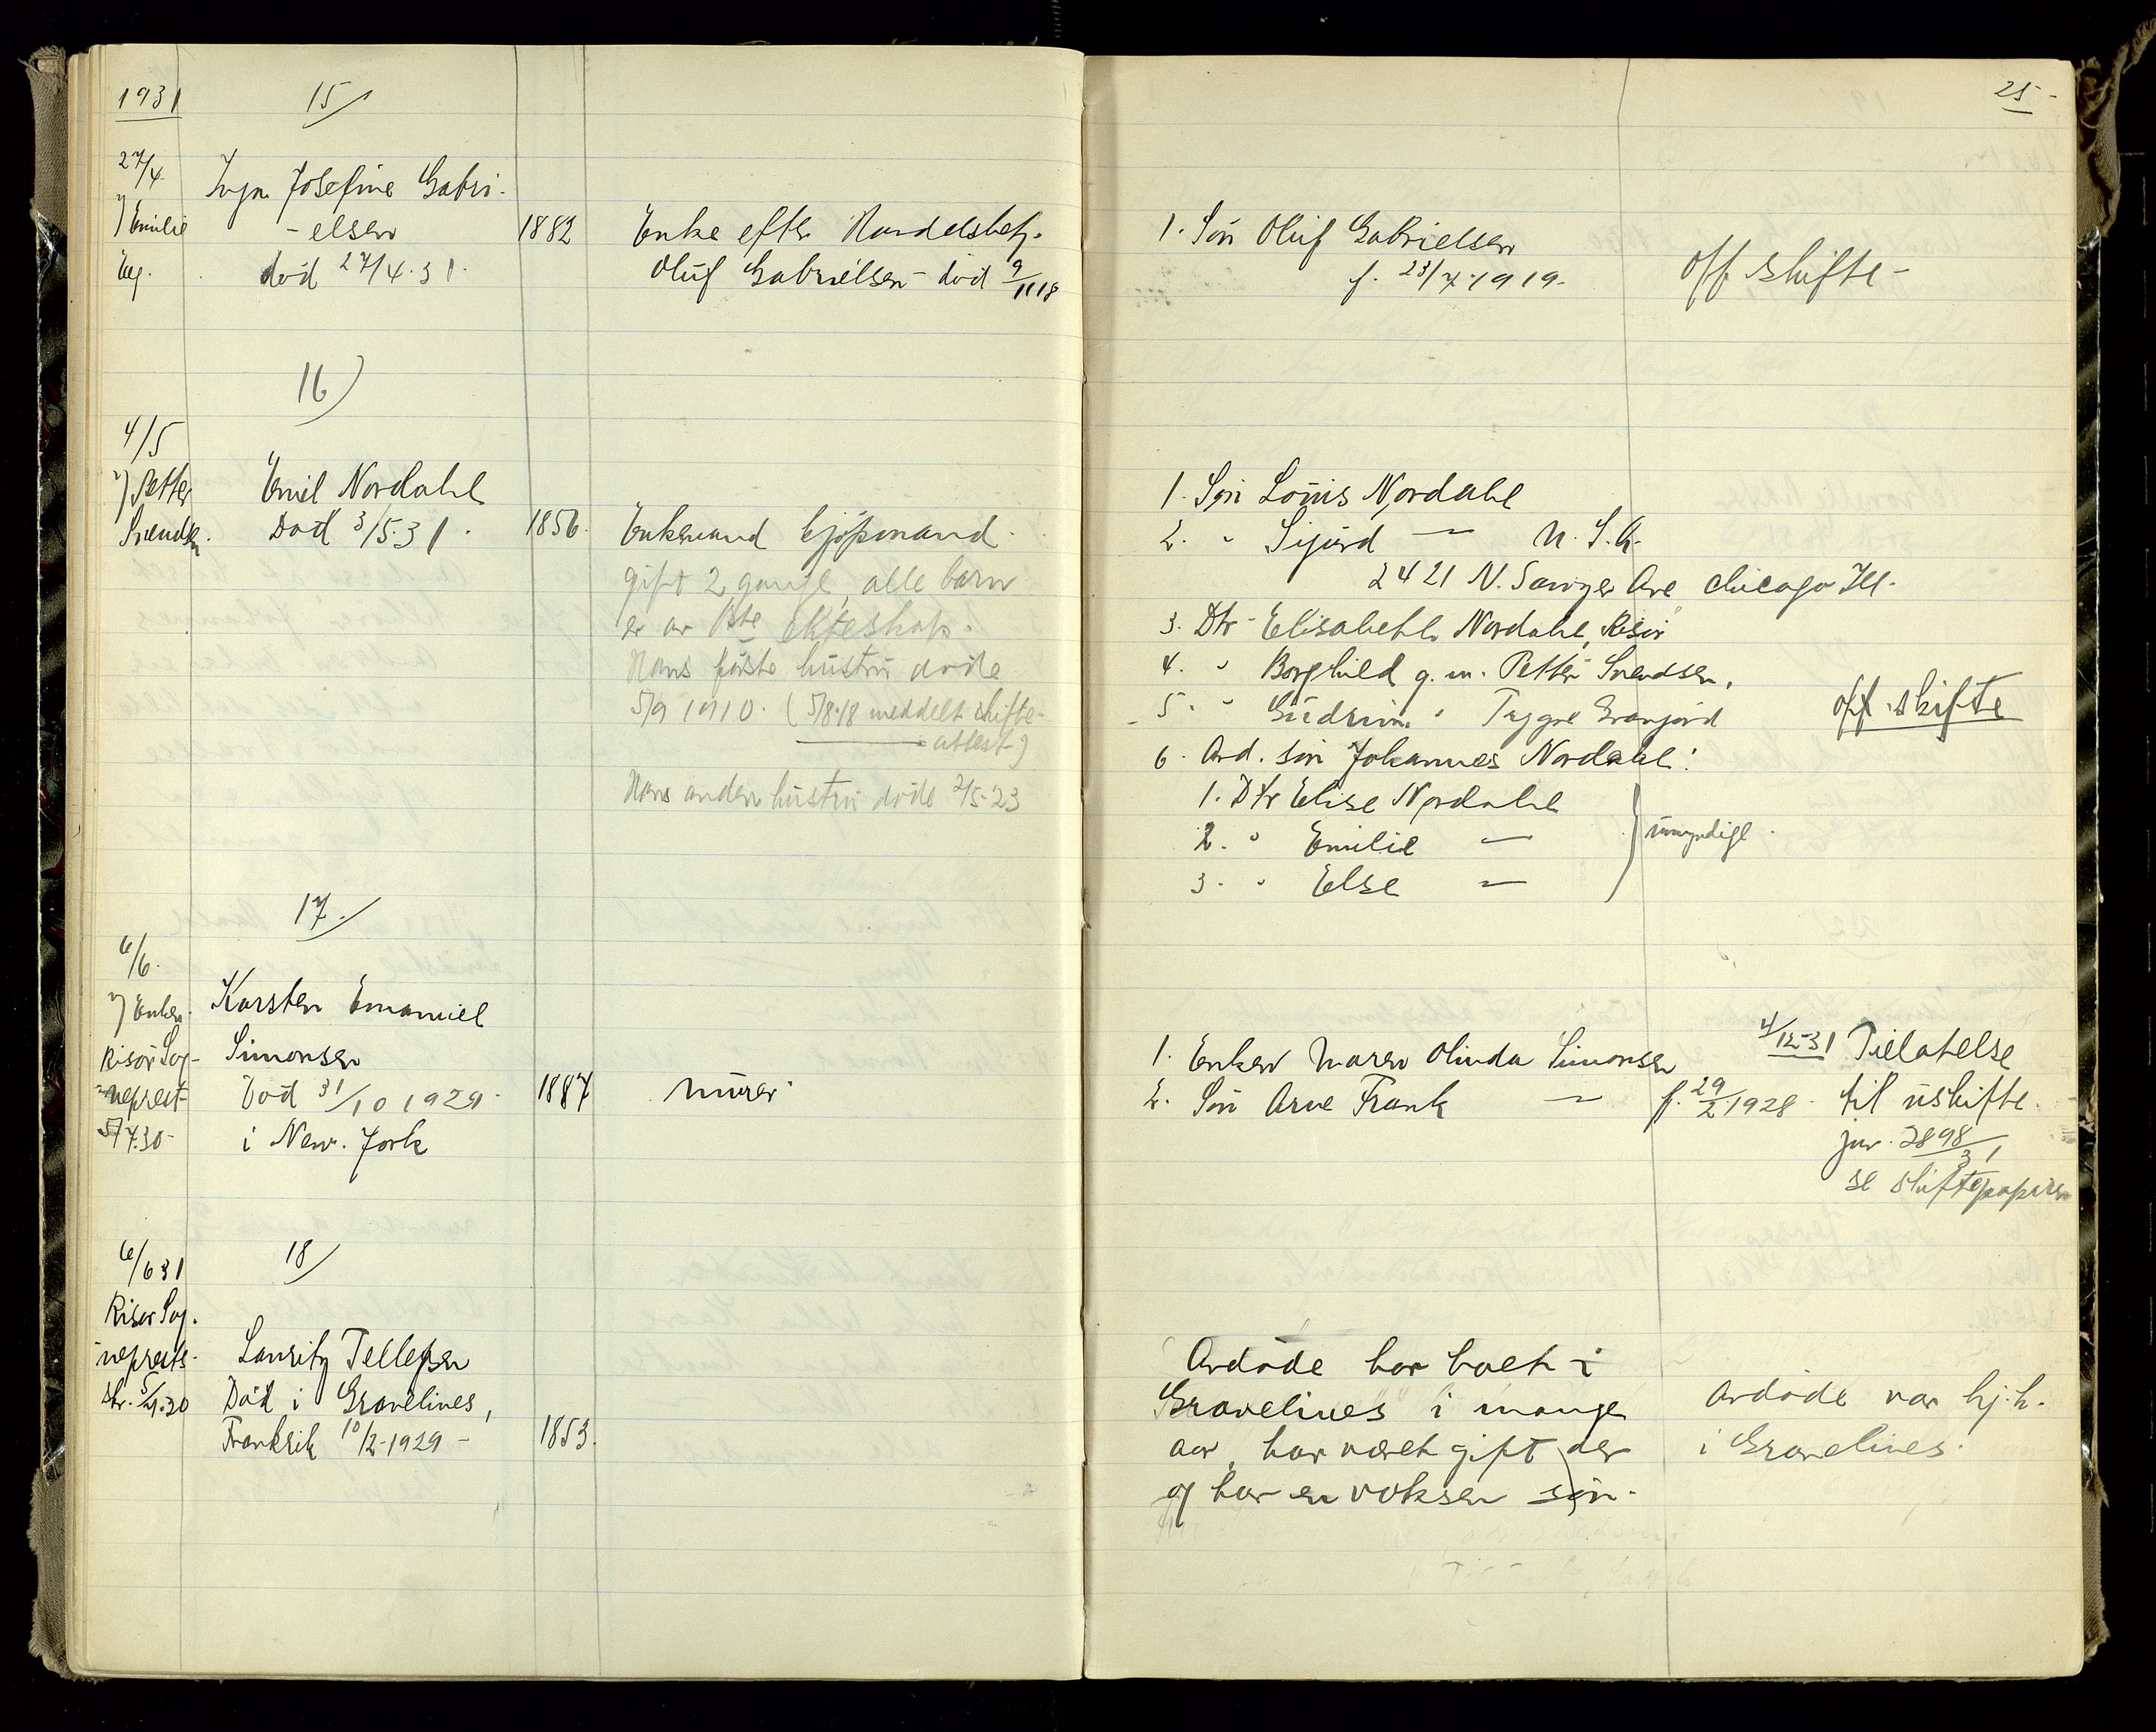 1931
15/
27/4
v/ Emilie
Inga Josefine Gabri-
-elsen
død 27/4.31.
1882
Enke efter Handelsbetj.
Oluf Gabrielsen død 9/11 18
16)
4/5
v/ Petter
Svendsen.
Emil Nordahl
Død 3/5.31.
1856.
Enkemand kjøpmand.
gift 2 gange, alle barn
er av 1ste ekteskap.
Hans første hustru døde
5/9 1910. (5/8.18 meddelt skifte-
attest)
Hans anden hustru døde 2/5-23
17/
6/6.
v/ Enken
Risør Sog-
neprest
5/4.30-
Karsten Emanuel
Simonsen
Død 31/10 1929.
i New. York
1887
murer
6/6 31
18/
Risør Sog.
neprests
skr. 5/4.30
Lauritz Tellefsen
Død i Gravelines,
Frankrik 10/2-1929 -
1853.
25-
1. Søn Oluf Gabrielsen
f. 23/4.1919.
off skifte -
1. Søn Louis Nordahl
2. " Sigurd — U.S.A.
2421 N. Sawyer Ave Chicago Ill.
3. Dtr Elisabeth Nordahl, Risør
4. " Borghild g.m. Petter Svendsen,
5. " Gudrun " Trygve
off. skifte
6. Avd. søn Johannes Nordahl:
1. Dtr Elise Nordahl
2. " Emilie —
3. " Else —
umyndige.
1. Enken Maren Olinda Simonsen
2. Søn Arne Frank — f. 29/2.1928.
4/12-31 Tillatelse
til uskifte.
jnr. 2898/31
se skiftepapirer
Avdøde har boet i
Gravelines i mange
aar, har været gift der
og har en voksen søn.
Avdøde var hj.h.
i Gravelines.